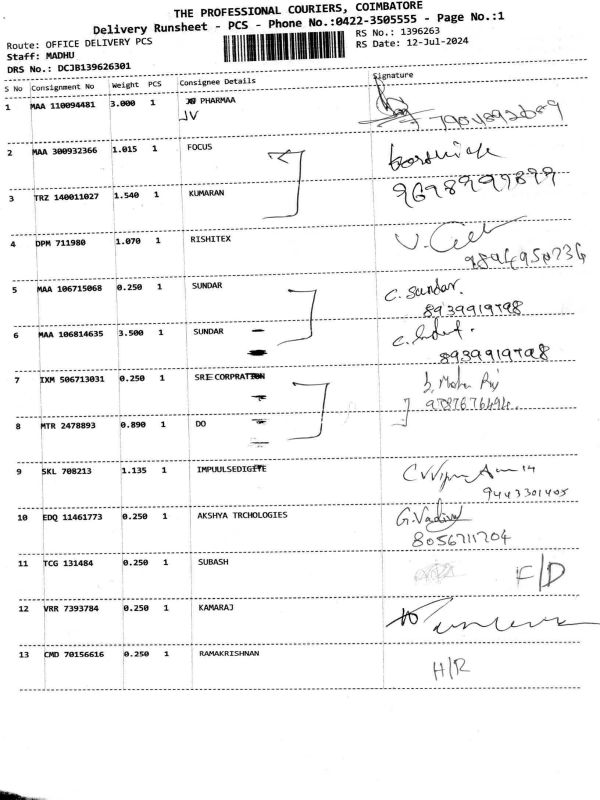 THE PROFESSIONAL COURIERS, COIMBATORE
Delivery Runsheet - PCS - Phone No.:0422-3505555 - Page No.:1
Route: OFFICE DELIVERY PCS RS No.: 1396263
Staff: MADHU RS Date: 12-Jul-2024
DRS No.: DCJB139626301
S No Consignment No Weight PCS Consignee Details Signature
1 MAA 110094481 3.000 1 PHARMAA
JV
2 MAA 300932366 1.015 1 FOCUS
3 TRZ 140011027 1.540 1 KUMARAN
4 DPM 711980 1.070 1 RISHITEX
5 MAA 106715068 0.250 1 SUNDAR C. Sundar.
8939919798
6 MAA 106814635 3.500 1 SUNDAR
8939919798
7 IXM 506713031 0.250 1 SRI CORPRATION
8 MTR 2478893 0.890 1 DO
9 SKL 708213 1.135 1 IMPUULSEDIGITE
9443301405
10 EDQ 11461773 0.250 1 AKSHYA TRCHOLOGIES G. Vadivel
8056711704
11 TCG 131484 0.250 1 SUBASH F/D
12 VRR 7393784 0.250 1 KAMARAJ
13 CMD 70156616 0.250 1 RAMAKRISHNAN H/R